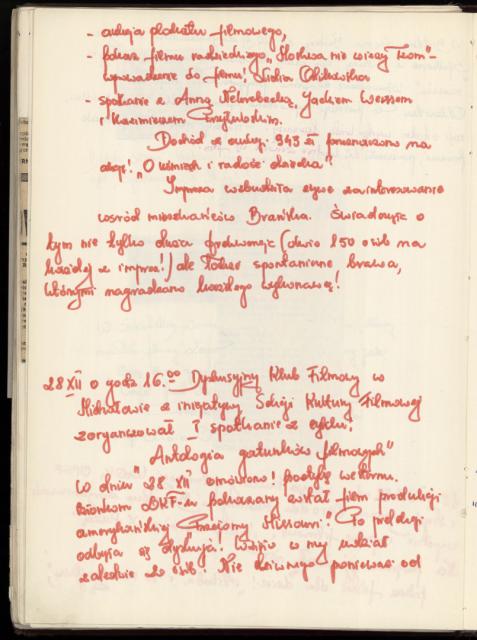 - aukcja plakatu filmowego,
- pokaz filmu radzieckiego "Moskwa nie wierzy łzom" -
wprowadzenie do filmu!
- spotkanie z Anną Nehrebecką, Jackiem
i Kazimierzem
Dochód z aukcji 943 zł przeznaczono na
akcję! "Uśmiech i radość dziecka"!
Impreza wzbudziła żywe zainteresowanie
wśród mieszkańców Brańska. Świadczyła o
tym nie tylko duża frekwencja (około 150 osób na
każdej z imprez!) ale także spontaniczne brawa,
którymi nagradzano każdego wykonawcę!
28 XII o godz 16.00 Dyskusyjny Klub Filmowy w
Michałowie z inicjatywy Sekcji Kultury Filmowej
zorganizował I spotkanie z cyklu:
"Antologia gatunków filmowych"
W dniu 28 XII omówiono! poetykę westernu.
Członkom DKF-u pokazany został film produkcji
amerykańskiej "Przełomy Missouri". Po prelekcji
odbyła się dyskusja! Wzięło w niej udział
zaledwie 20 osób. Nic dziwnego ponieważ od